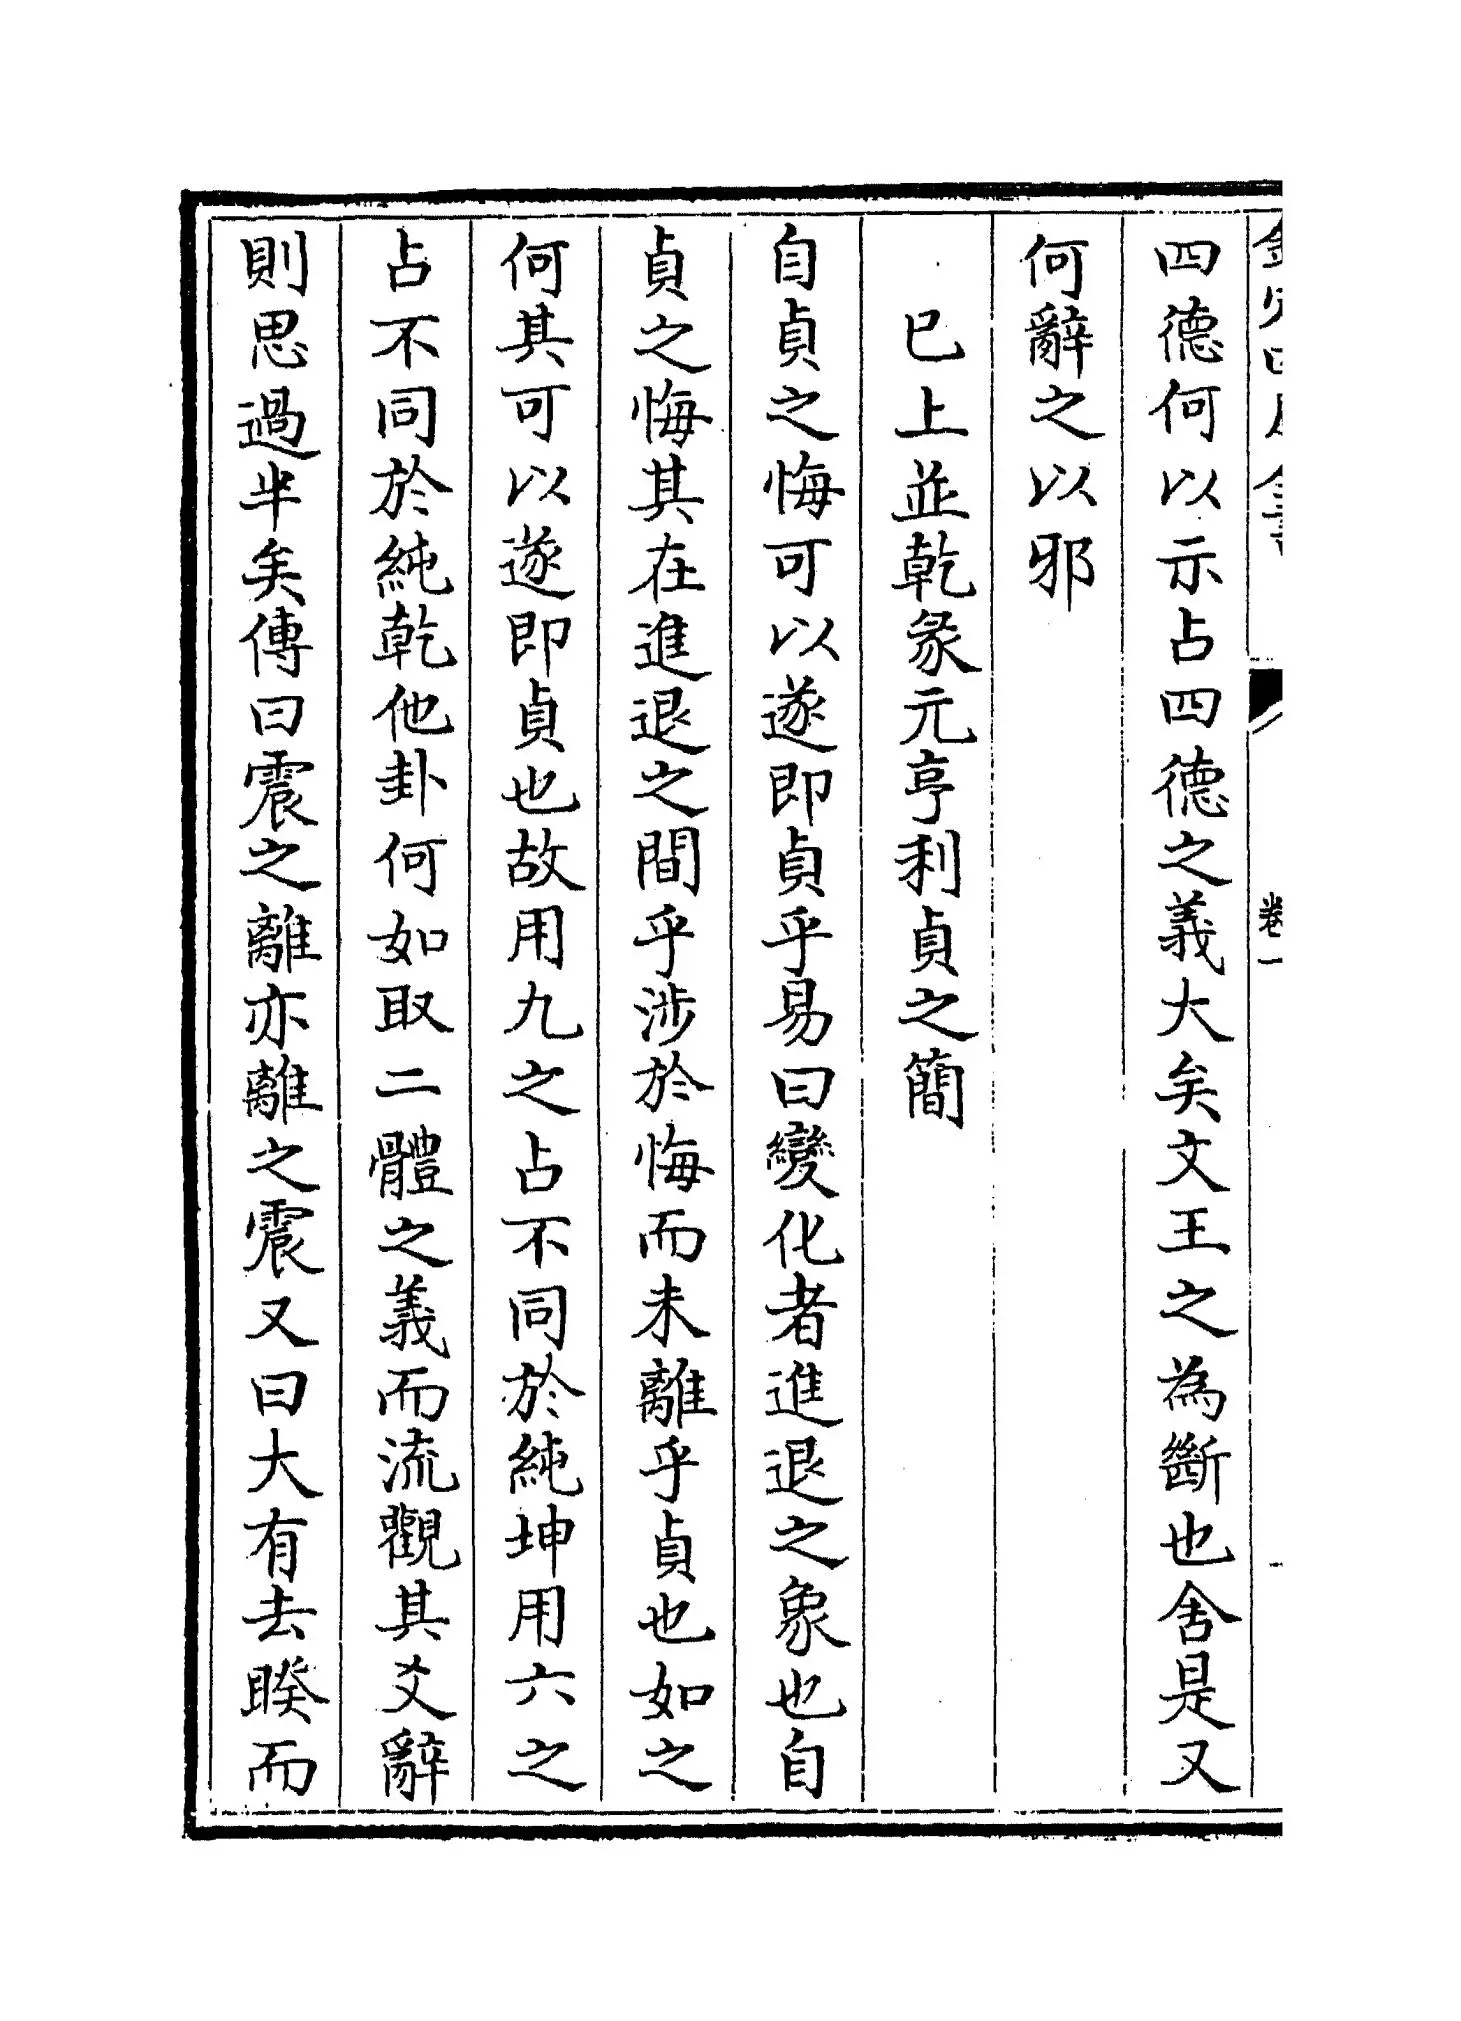 四德何以示占四德之義大矣文王之為斷也舍是又
何辭之以邪
已上並乾彖元亨利貞之簡
自貞之悔可以遂即貞乎易曰變化者進退之象也自
貞之悔其在進退之間乎涉於悔而未離乎貞也如之
何其可以遂即貞也故用九之占不同於純坤用六之
占不同於純乾他卦何如取二體之義而流觀其爻辭
則思過半矣傳曰震之離亦離之震又曰大有去睽而
卷一